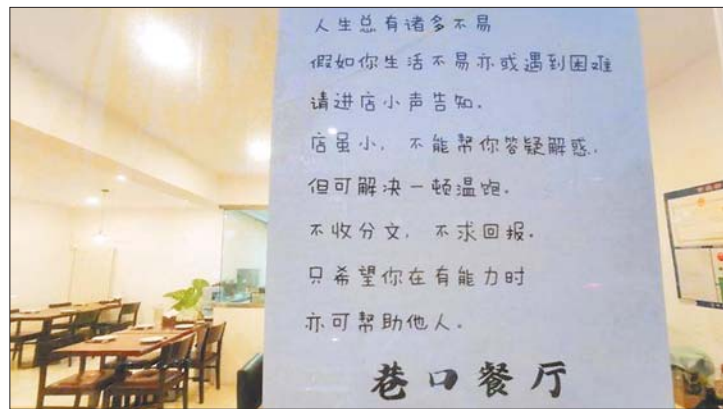 人生总有诸多不易
假如你生活不易亦或遇到困难
请进店小声告知。
店虽小，不能帮你答疑解惑，
但可解决一顿温饱。
不收分文，不求回报。
只希望你在有能力时
亦可帮助他人。
巷口餐厅